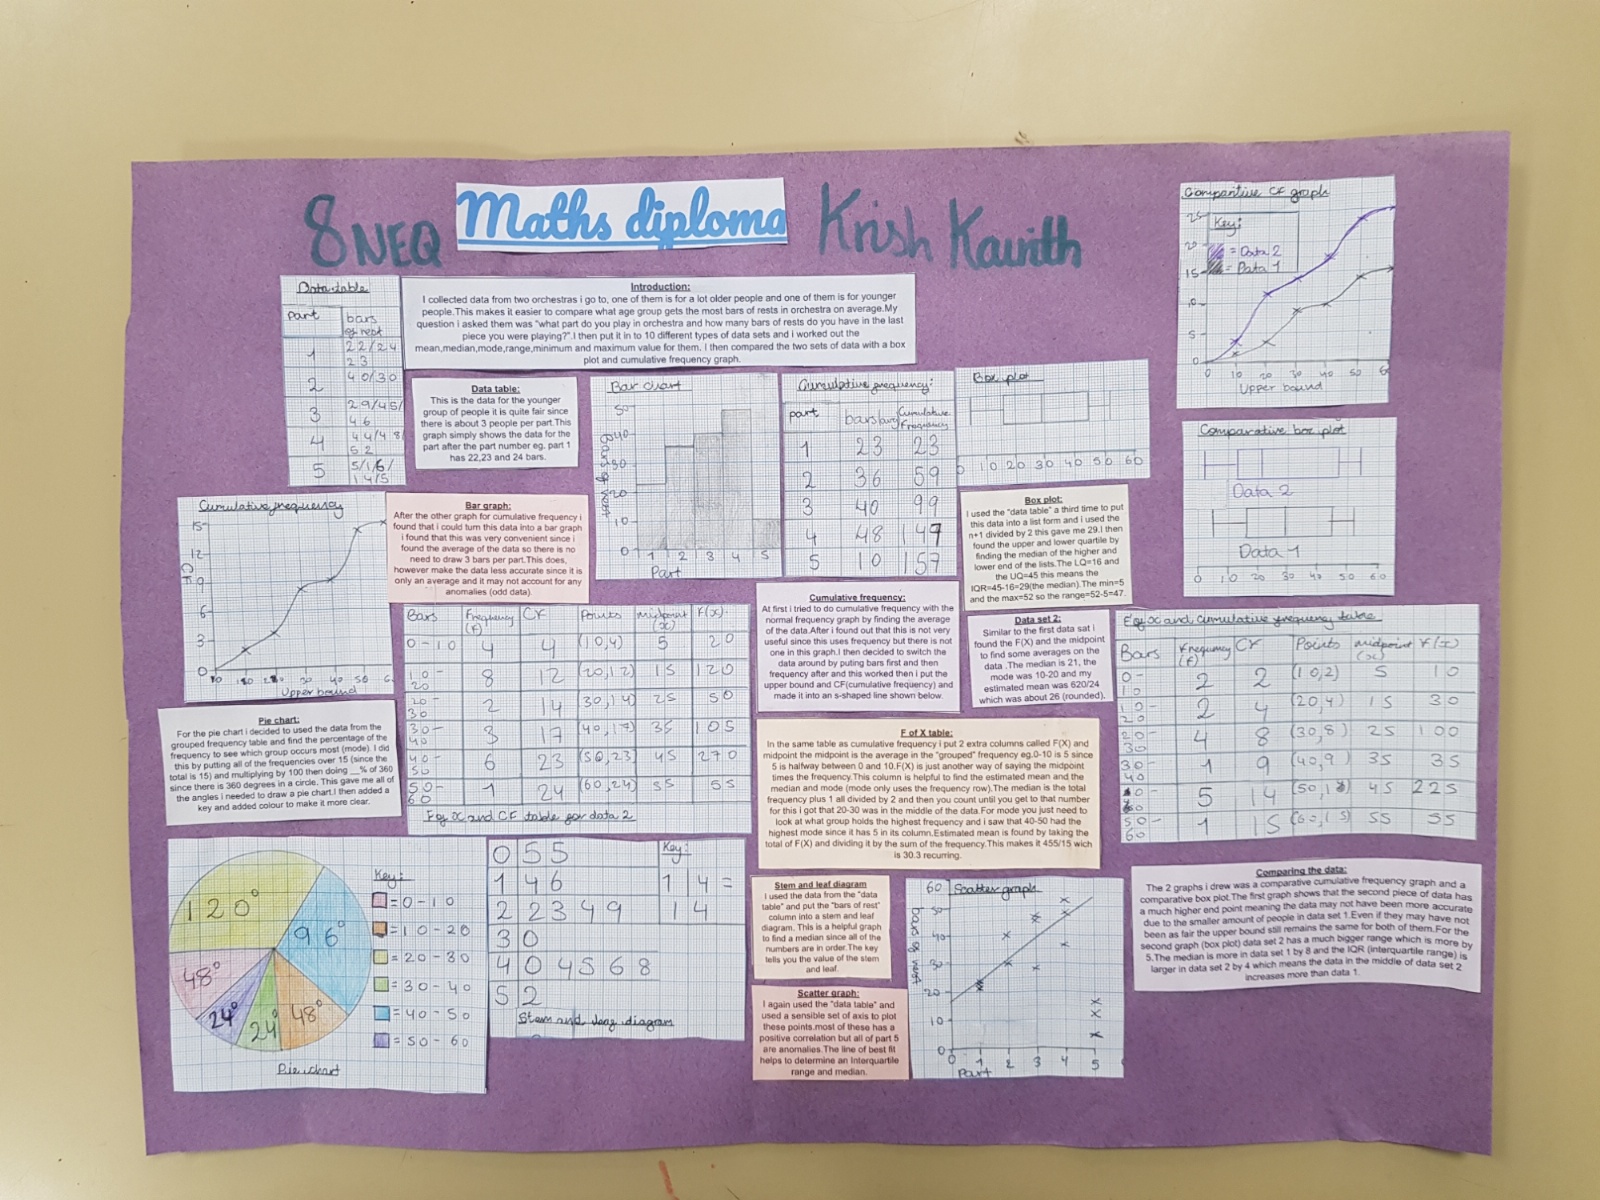 8NEQ Maths diploma Krish Kavrith
Data table
part bars of rest
1 22/24 23
2 40/30
3 29/45/46
4 44/48/52
5 5/16/14/5
Introduction:
I collected data from two orchestras i go to, one of them is for a lot older people and one of them is for younger
people.This makes it easier to compare what age group gets the most bars of rests in orchestra on average.My
question i asked them was "what part do you play in orchestra and how many bars of rests do you have in the last
piece you were playing?".I then put it in to 10 different types of data sets and i worked out the
mean,median,mode,range,minimum and maximum value for them. I then compared the two sets of data with a box
plot and cumulative frequency graph.
Data table:
This is the data for the younger
group of people it is quite fair since
there is about 3 people per part.This
graph simply shows the data for the
part after the part number eg. part 1
has 22,23 and 24 bars.
Bar chart
50
40
30
20
10
0 1 2 3 4 5
Part
Cumulative frequency:
part bars Cumulative Frequency
1 23 23
2 36 59
3 40 99
4 48 147
5 10 157
Box plot
0 10 20 30 40 50 60
Comparitive CF graph
Key:
= Data 2
= Data 1
25
20
15
10
5
0
0 10 20 30 40 50 60
Upper bound
Comparative box plot
Data 2
Data 1
0 10 20 30 40 50 60
Cumulative frequency
CF
15
12
9
6
3
0
30 40 50
Upper bound
Bar graph:
After the other graph for cumulative frequency i
found that i could turn this data into a bar graph
i found that this was very convenient since i
found the average of the data so there is no
need to draw 3 bars per part.This does,
however make the data less accurate since it is
only an average and it may not account for any
anomalies (odd data).
Box plot:
I used the "data table" a third time to put
this data into a list form and i used the
n+1 divided by 2 this gave me 29.I then
found the upper and lower quartile by
finding the median of the higher and
lower end of the lists.The LQ=16 and
the UQ=45 this means the
IQR=45-16=29(the median).The min=5
and the max=52 so the range=52-5=47.
Cumulative frequency:
At first i tried to do cumulative frequency with the
normal frequency graph by finding the average
of the data.After i found out that this is not very
useful since this uses frequency but there is not
one in this graph.I then decided to switch the
data around by puting bars first and then
frequency after and this worked then i put the
upper bound and CF(cumulative frequency) and
made it into an s-shaped line shown below.
Data set 2:
Similar to the first data sat i
found the F(X) and the midpoint
to find some averages on the
data .The median is 21, the
mode was 10-20 and my
estimated mean was 620/24
which was about 26 (rounded).
Bars Frequency (F) CF Points midpoint (x) F(x)
0-10 4 4 (10,4) 5 20
10-20 8 12 (20,12) 15 120
20-30 2 14 (30,14) 25 50
30-40 3 17 (40,17) 35 105
40-50 6 23 (50,23) 45 270
50-60 1 24 (60,24) 55 55
F of x and CF table for data 2
F of x and cumulative frequency table
Bars Frequency (f) CF Points midpoint (x) F(x)
0-10 2 2 (10,2) 5 10
10-20 2 4 (20,4) 15 30
20-30 4 8 (30,8) 25 100
30-40 1 9 (40,9) 35 35
5 14 45 225
50-60 1 15 (60,15) 55 55
Pie chart:
For the pie chart i decided to used the data from the
grouped frequency table and find the percentage of the
frequency to see which group occurs most (mode). I did
this by putting all of the frequencies over 15 (since the
total is 15) and multiplying by 100 then doing __% of 360
since there is 360 degrees in a circle. This gave me all of
the angles i needed to draw a pie chart.I then added a
key and added colour to make it more clear.
F of X table:
In the same table as cumulative frequency i put 2 extra columns called F(X) and
midpoint the midpoint is the average in the "grouped" frequency eg.0-10 is 5 since
5 is halfway between 0 and 10.F(X) is just another way of saying the midpoint
times the frequency.This column is helpful to find the estimated mean and the
median and mode (mode only uses the frequency row).The median is the total
frequency plus 1 all divided by 2 and then you count until you get to that number
for this i got that 20-30 was in the middle of the data.For mode you just need to
look at what group holds the highest frequency and i saw that 40-50 had the
highest mode since it has 5 in its column.Estimated mean is found by taking the
total of F(X) and dividing it by the sum of the frequency.This makes it 455/15 wich
is 30.3 recurring.
120°
96°
48°
24°
24°
48°
Key:
= 0-10
= 10-20
= 20-30
= 30-40
= 40-50
= 50-60
Pie chart
0 55
1 46
2 2349
3 0
4 04568
5 2
Key:
1|4 =
14
Stem and diagram
Stem and leaf diagram
I used the data from the "data
table" and put the "bars of rest"
column into a stem and leaf
diagram. This is a helpful graph
to find a median since all of the
numbers are in order.The key
tells you the value of the stem
and leaf.
Scatter graph:
I again used the "data table" and
used a sensible set of axis to plot
these points.most of these has a
positive correlation but all of part 5
are anomalies.The line of best fit
helps to determine an Interquartile
range and median.
Scatter graph
60
50
40
30
20
10
0
0 1 2 3 4 5
Part
Comparing the data:
The 2 graphs i drew was a comparative cumulative frequency graph and a
comparative box plot.The first graph shows that the second piece of data has
a much higher end point meaning the data may not have been more accurate
due to the smaller amount of people in data set 1.Even if they may have not
been as fair the upper bound still remains the same for both of them.For the
second graph (box plot) data set 2 has a much bigger range which is more by
5.The median is more in data set 1 by 8 and the IQR (interquartile range) is
larger in data set 2 by 4 which means the data in the middle of data set 2
increases more than data 1.